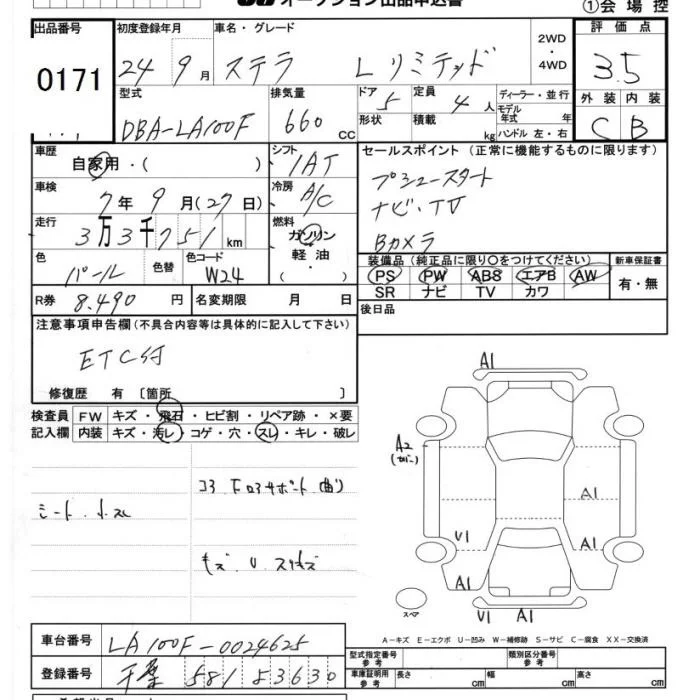 オークション出品申込書
①会場控
出品番号 初度登録年月 車名・グレード 2WD・4WD 評価点
0171 24年9月 ステラ Lリミテッド 3.5
型式 排気量 ドア 5 定員 4人 ディーラー・並行 外装 内装
DBA-LA100F 660cc 形状 積載 kg モデル年式 年 ハンドル 左・右 C B
車歴 自家用・( ) シフト IAT セールスポイント (正常に機能するものに限ります)
車検 7年9月(27日) 冷房 A/C プシュースタート
ナビ・TV
走行 3万3千751km 燃料 ガソリン・軽油・( ) Bカメラ
色 パール 色替 色コード W24 装備品(純正品に限り○をつけてください) 新車保証書
PS PW ABS エアB AW 有・無
SR ナビ TV カワ
R券 8.490円 名変期限 月 日 後日品
注意事項申告欄(不具合内容等は具体的に記入して下さい)
ETC付
修復歴 有 〔箇所 〕
検査員 FW キズ・飛石・ヒビ割・リペア跡・×要
記入欄 内装 キズ・汚レ・コゲ・穴・スレ・キレ・破レ
シート
キズ.U.スリキズ
A1
A2
(カバー)
A1
V1
A1
A1
スペア
V1 A1
A-キズ E-エクボ U-凹み W-補修跡 S-サビ C-腐食 XX-交換済
車台番号 LA100F-0024625
型式指定番号 参考 類別区分番号 参考
登録番号 千葉 581 53630
車庫証明用 参考 長さ cm 幅 cm 高さ cm